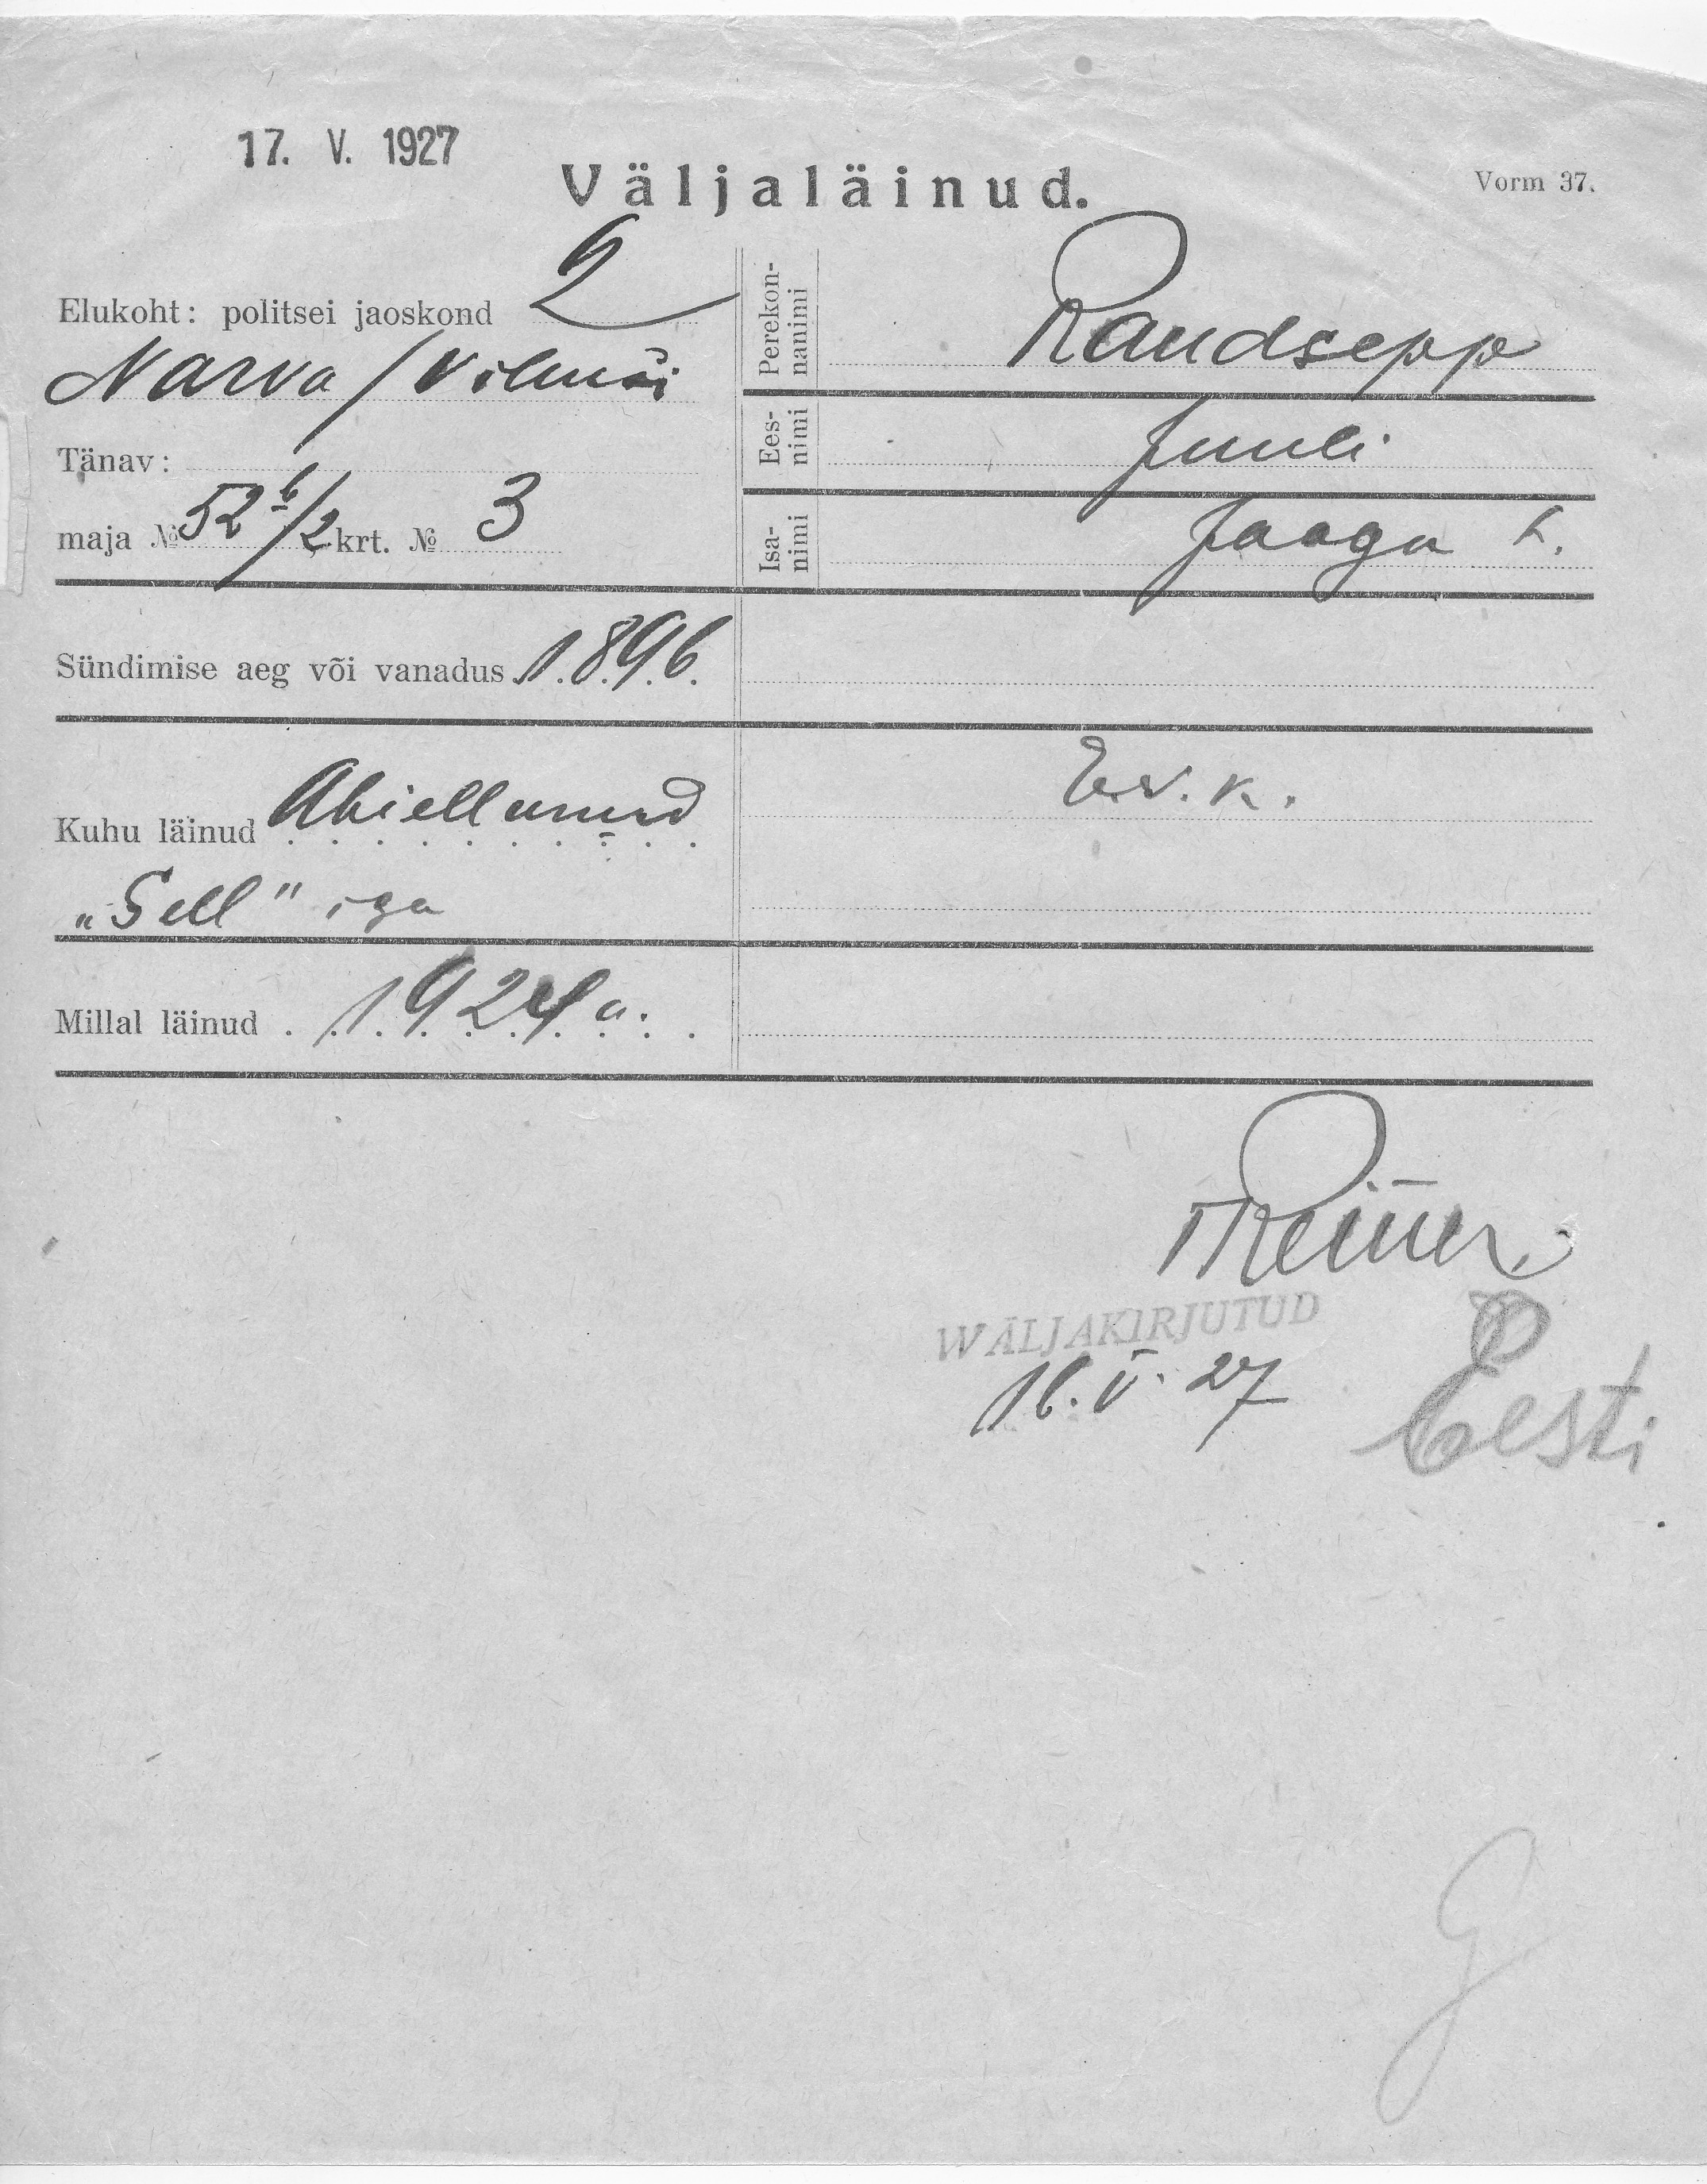 17. V. 1927
Väljaläinud.
Vorm 37.
Elukoht: politsei jaoskond 2
Narva / Vilmsi
Tänav:
maja № 52 b/2 krt. № 3
Perekonnanimi Raudsepp
Eesnimi Juuli
Isanimi Jaagu t.
Sündimise aeg või vanadus 1896.
Kuhu läinud Abiellunud
„Sell" iga
Ev. k.
Millal läinud 1924 a.
WÄLJAKIRJUTUD
16. V. 27
Eesti